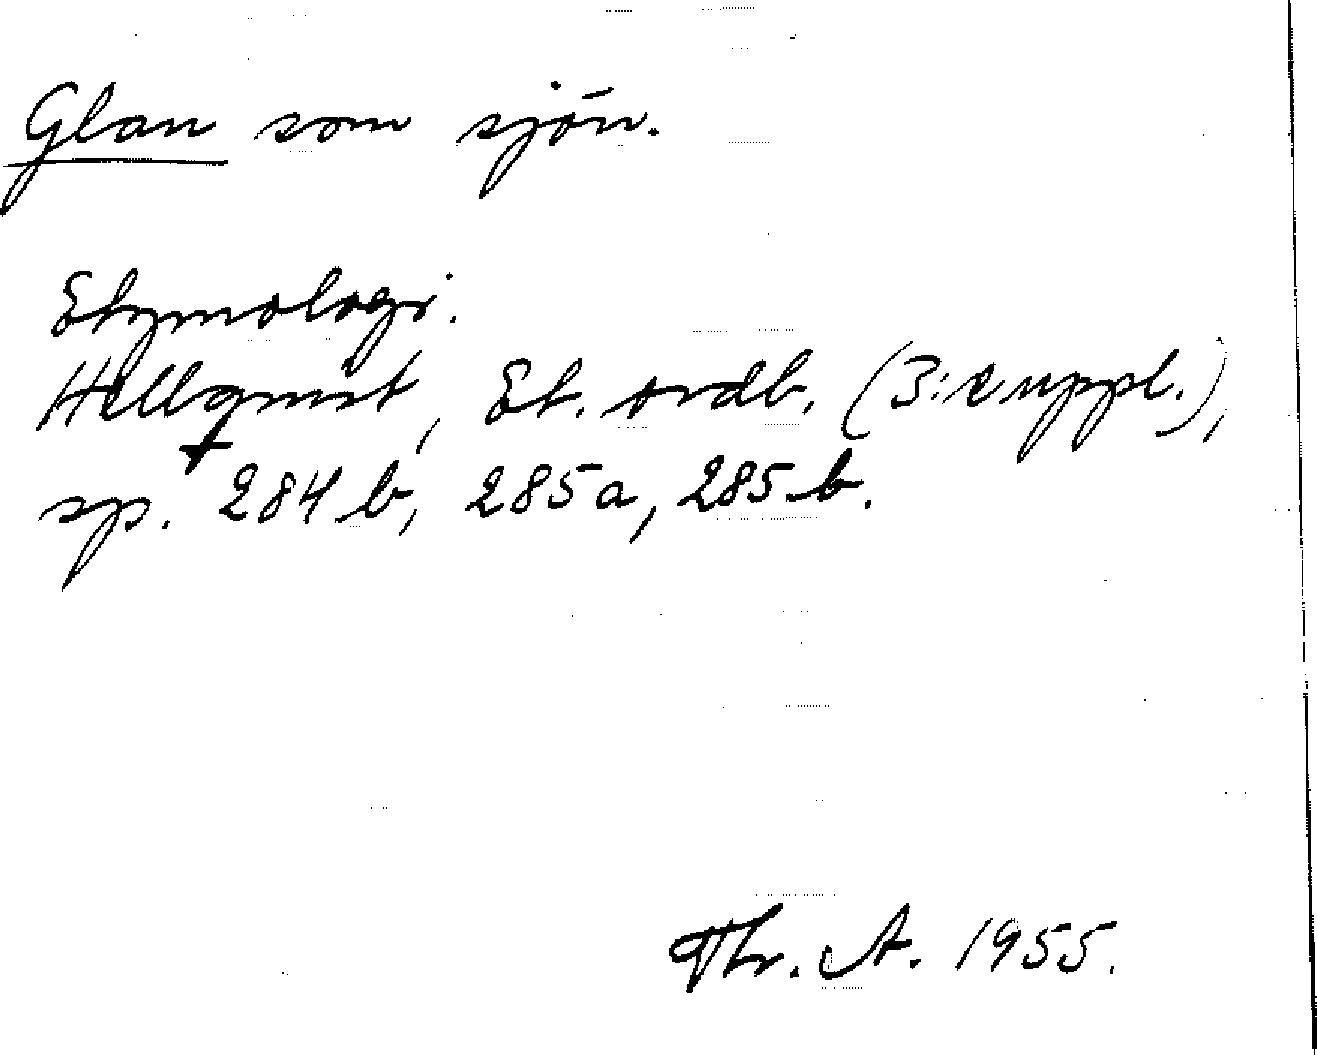 Glan som sjön.
Etymologi.
Hellqvist, Et. ordb. (3:e uppl.),
sp. 284 b, 285 a, 285 b.
Thr. A. 1955.